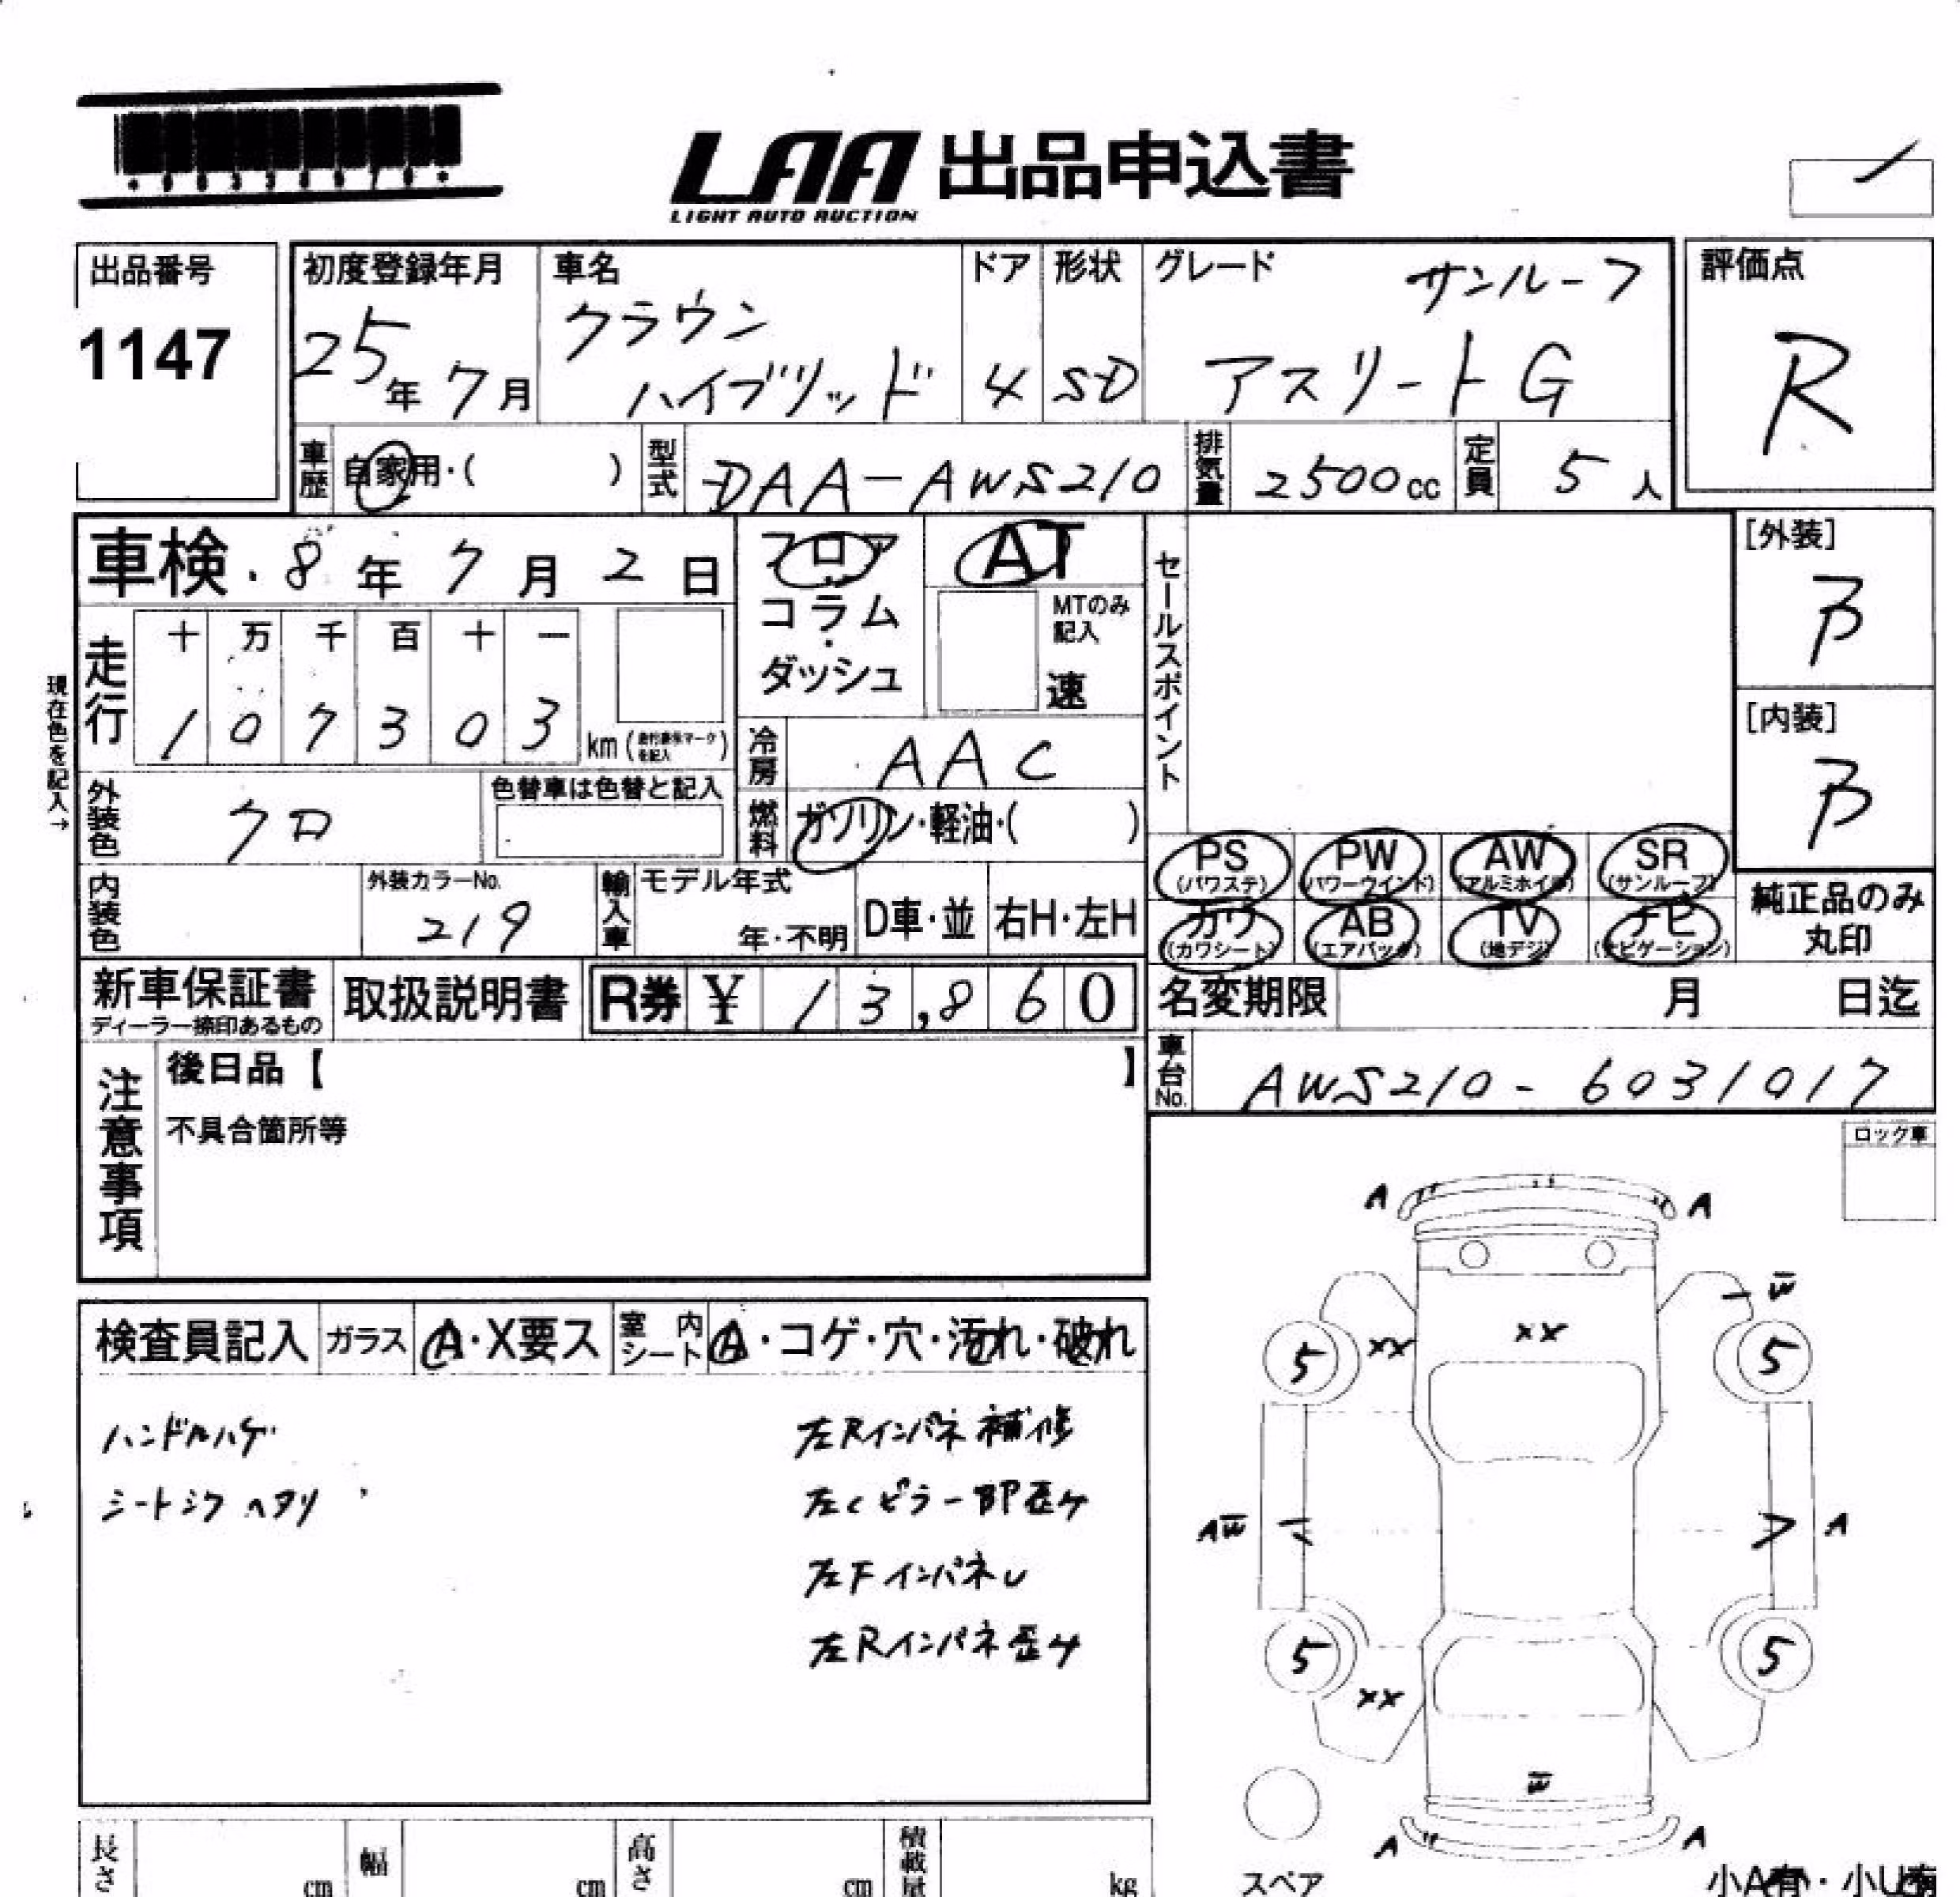 LAA 出品申込書
LIGHT AUTO AUCTION
出品番号
1147
初度登録年月
25年7月
車名
クラウン
ハイブリッド
ドア
4
形状
SD
グレード
サンルーフ
アスリートG
評価点
R
車歴
自家用・( )
型式
DAA-AWS210
排気量
2500cc
定員
5人
車検 8年7月2日
フロア
コラム
・
ダッシュ
AT
MTのみ
記入
速
セールスポイント
[外装]
B
[内装]
B
現在色を記入→
走行
十 万 千 百 十 一
1 0 7 3 0 3 km
冷房
AAC
外装色
クロ
色替車は色替と記入
燃料
ガソリン・軽油・( )
PS
(パワステ)
PW
(パワーウインド)
AW
(アルミホイル)
SR
(サンルーフ)
カワ
(カワシート)
AB
(エアバッグ)
TV
(地デジ)
ナビ
(ナビゲーション)
純正品のみ
丸印
内装色
外装カラーNo.
219
輸入車
モデル年式
年・不明
D車・並
右H・左H
新車保証書
ディーラー捺印あるもの
取扱説明書
R券 ¥ 13,860
名変期限 月 日迄
車台No.
AWS210-6031017
注意事項
後日品【 】
不具合箇所等
ロック車
検査員記入
ガラス
A・X要ス
室内シート
A・コゲ・穴・汚れ・破れ
ハンドルハゲ
シートシワ ヘタリ
左Rインパネ補修
左Cピラー部歪ケ
左Fインパネし
左Rインパネ歪ケ
A A
W
XX XX
5 5
AW A
5 5
XX
W
A A
スペア
小A有・小U有
長さ cm
幅 cm
高さ cm
積載量 kg